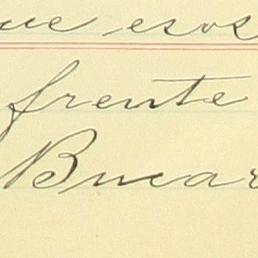 ue esos
frente
Bucar